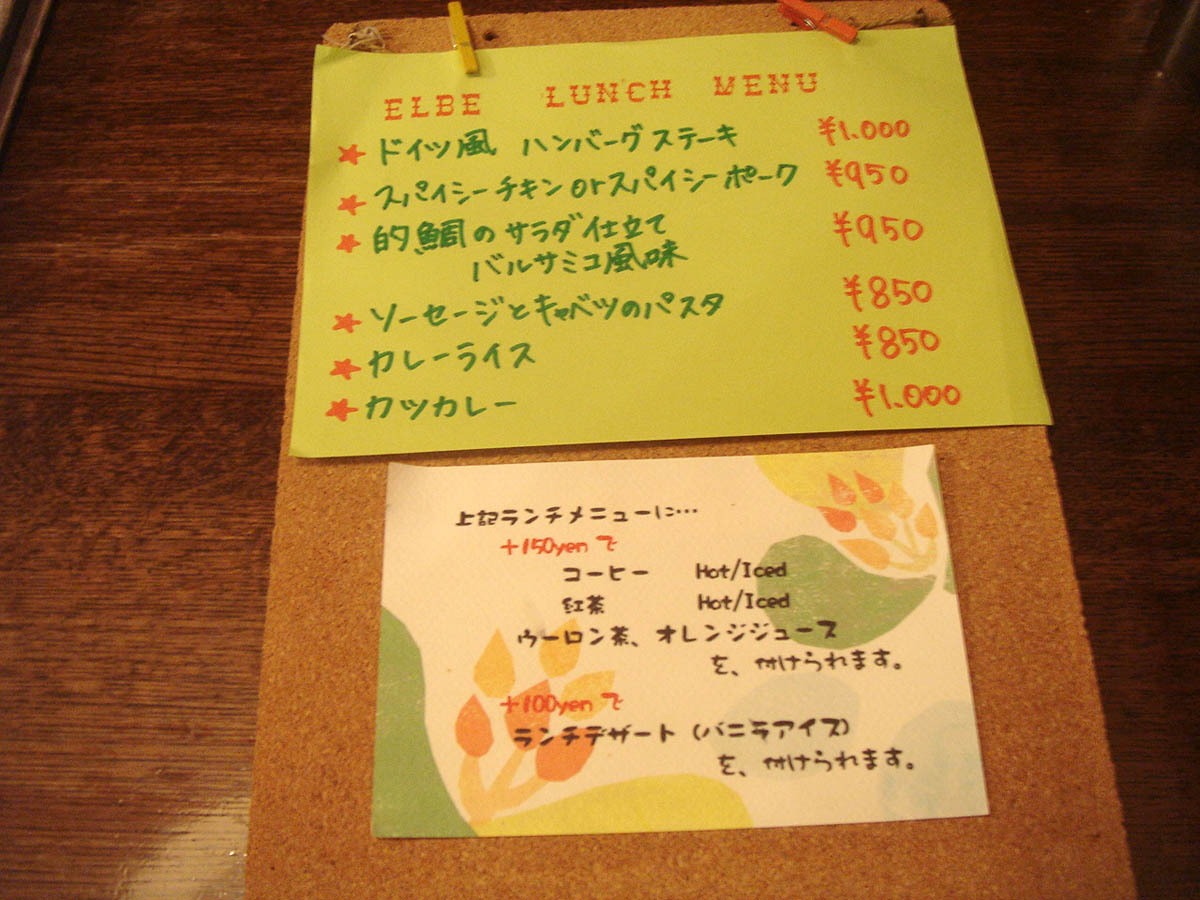 ELBE LUNCH MENU
★ ドイツ風 ハンバーグステーキ ¥1.000
★ スパイシーチキンorスパイシーポーク ¥950
★ 的鯛のサラダ仕立て ¥950
バルサミコ風味
★ ソーセージとキャベツのパスタ ¥850
★ カレーライス ¥850
★ カツカレー ¥1.000
上記ランチメニューに…
+150yenで
コーヒー Hot/Iced
紅茶 Hot/Iced
ウーロン茶、オレンジジュース
を、付けられます。
+100yenで
ランチデザート (バニラアイス)
を、付けられます。